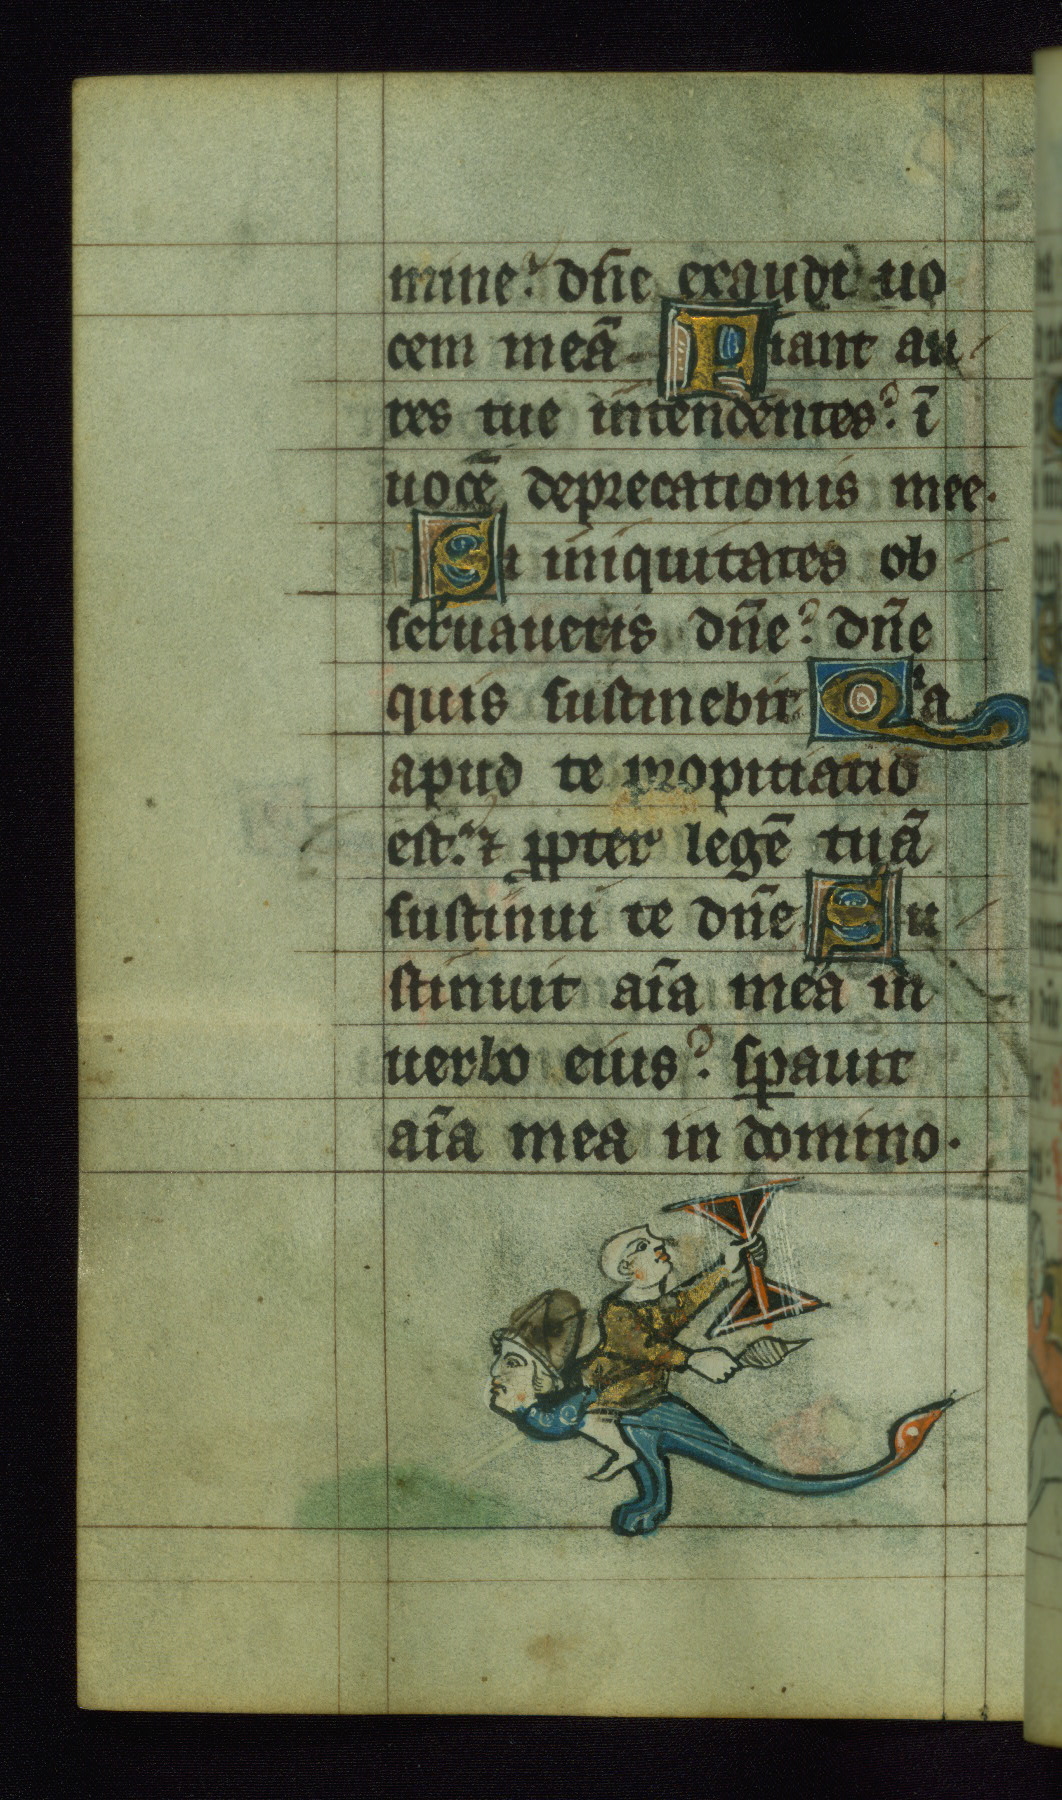 mine? dn̄e exaudi uo
cem meā Fiant au
res tue intendentes? ī
uocē deprecationis mee.
Si iniquitates ob
seruaueris dn̄e? dn̄e
quis sustinebit Qͥa
apud te propitiatio
est? ⁊ ꝓpter legē tuā
sustinui te dn̄e Su
stinuit aīa mea in
uerbo eius? sꝑauit
aīa mea in domino.